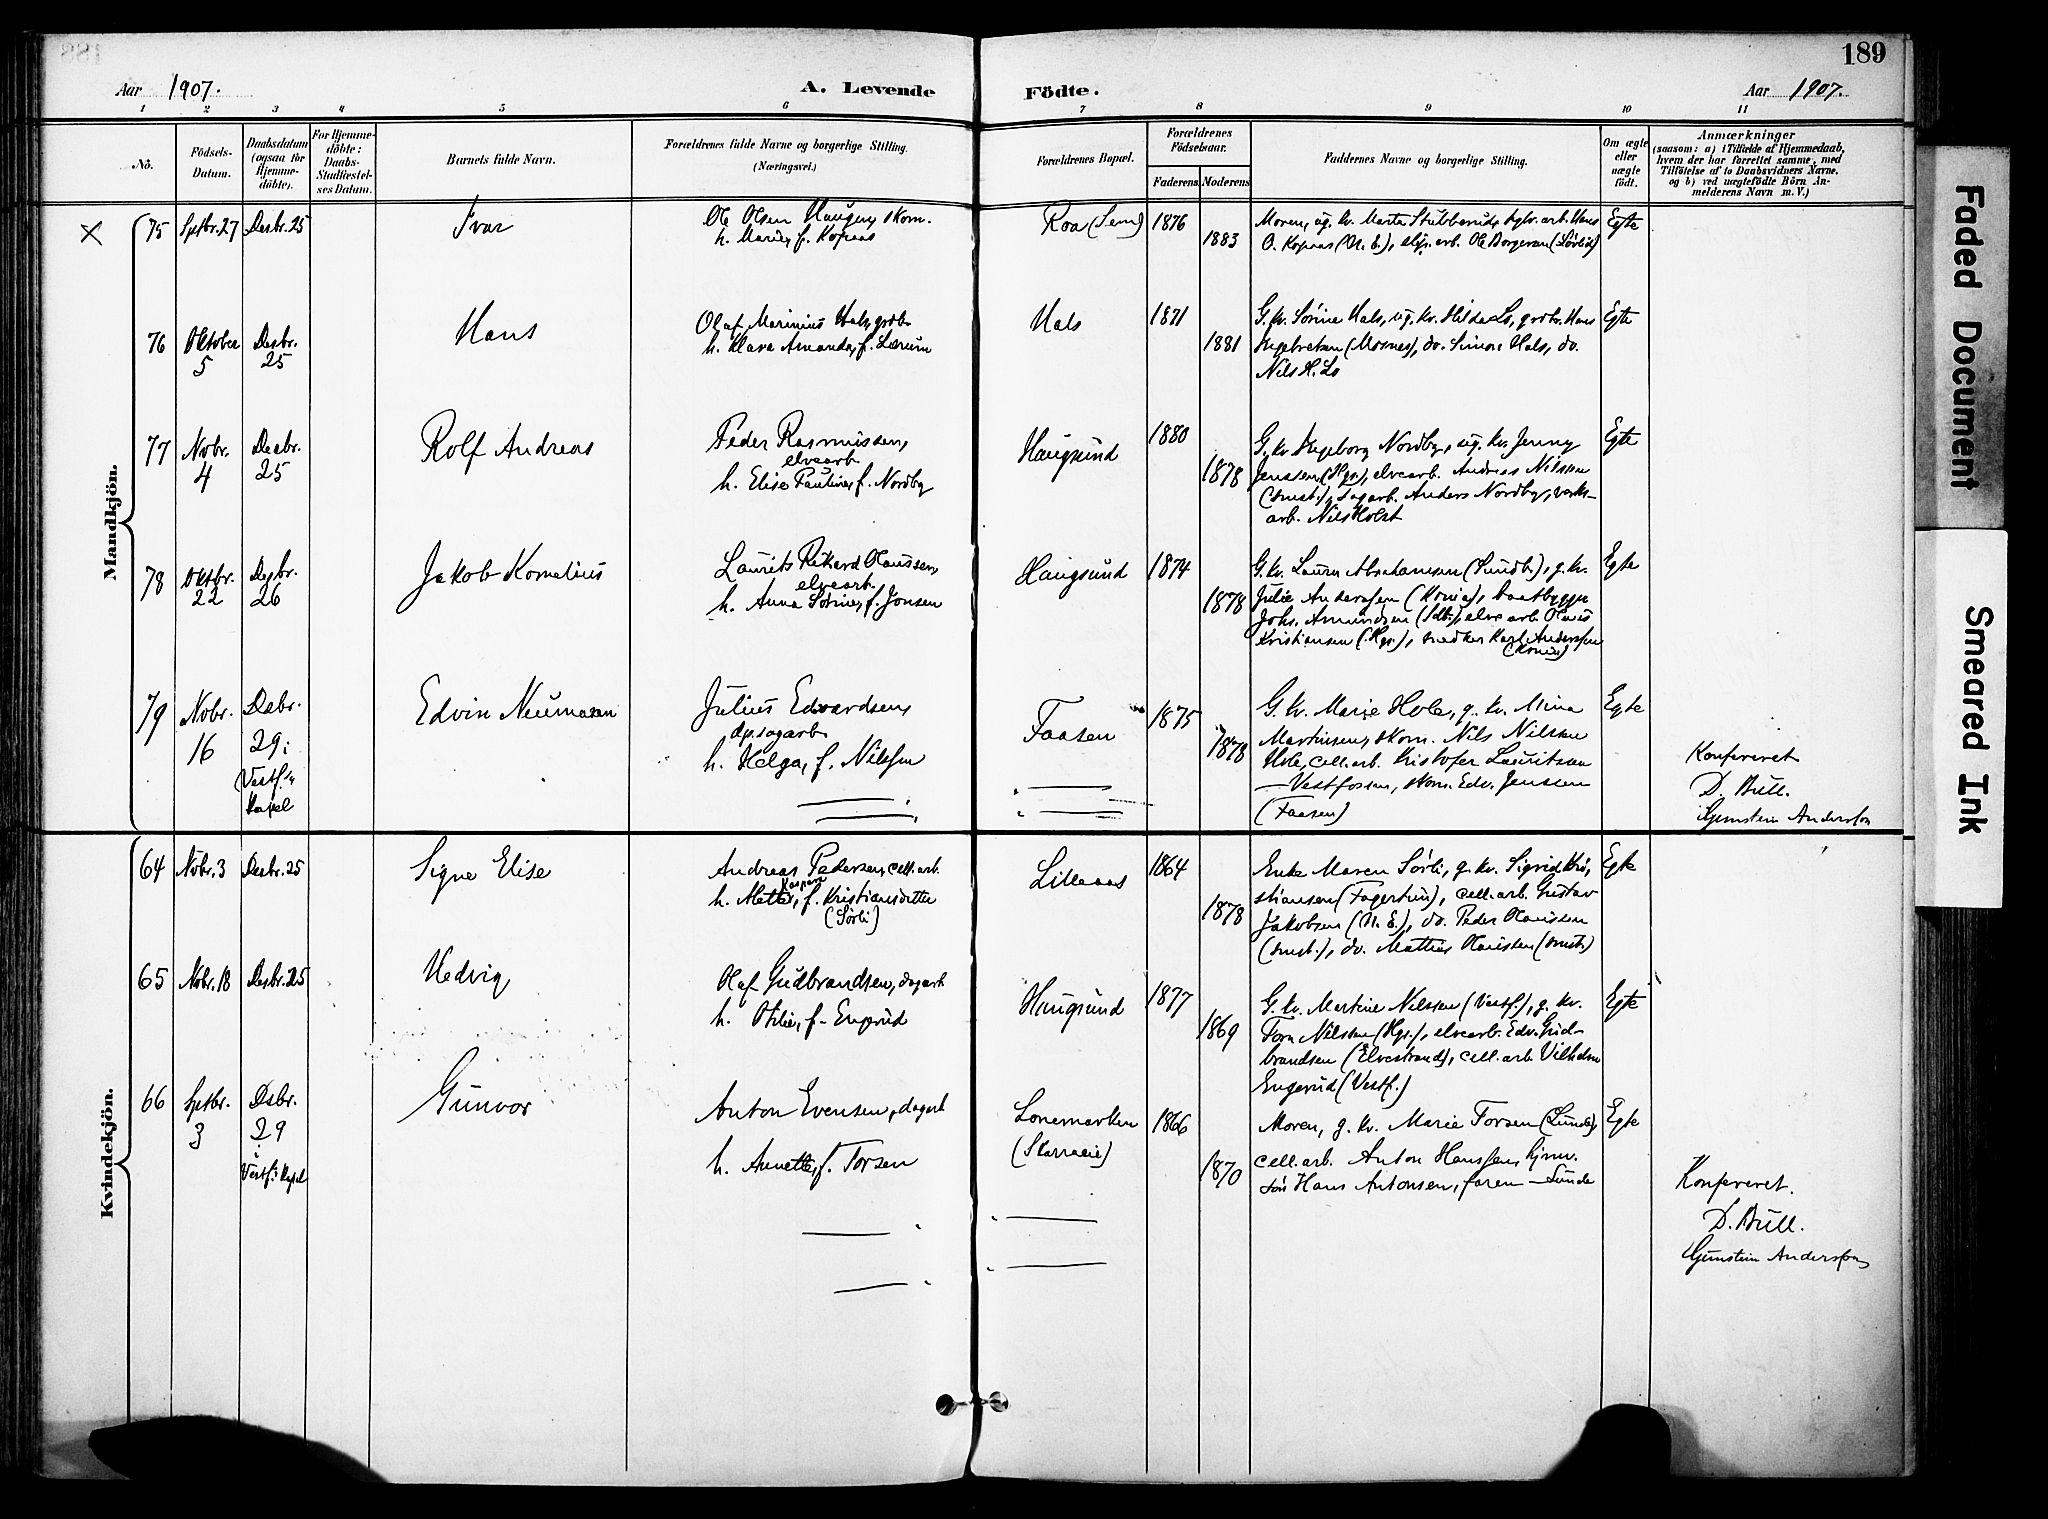 189
Aar 1907.
A. Levende Födte.
Aar 1907.
1 2 3 4 5 6 7 8 9 10 11
No.
Födsels-
Datum.
Daabsdatum
(ogsaa för
Hjemme-
döbte).
For Hjemme-
döbte:
Daabs-
Stadfæstel-
ses Datum.
Barnets fulde Navn.
Forældrenes fulde Navne og borgerlige Stilling.
(Næringsvei.)
Forældrenes Bopæl.
Forældrenes
Födselsaar.
Faderens Moderens
Faddernes Navne og borgerlige Stilling.
Om ægte
eller
uægte
födt.
Anmærkninger
(saasom: a) i Tilfælde af Hjemmedaab,
hvem der har forrettet samme, med
Tilföielse af to Daabsvidners Navne,
og b) ved uægtefödte Börn An-
melderens Navn m. V.)
Mandkjön.
75 Septbr. 27 Desbr. 25
Ivar
Ole Olsen Haugen, skom.
h. Marie, f. Kopaas
Roa (Sem)
1876
1883
Moren, ug. kv. Marta Stubberud, arb. Hans
O. Kopaas (N. E.), arb. Ole Borgersen (Sörli)
Egte
76 Oktober
5
Desbr.
25
Hans
Olaf Marinius Hals, grdbr.
h. Klara Amanda, f. Lerum
Hals
1871
1881
G. kv. Sörine Hals, ug. kv. Hilda Lo, grdbr. Hans
Ingebretsen (Moenes), do. Simon Hals, do.
Nils H. Lo
Egte
77 Novbr.
4
Desbr.
25
Rolf Andreas
Peder Rasmussen,
elvearb.
h. Elise Pauline, f. Nordby
Haugsund
1880
1878
G. kv. Ingeborg Nordby, ug. kv. Jenny
Jenssen (Hgs.), elvearb. Andreas Nilssen
(smst.), sagarb. Anders Nordby, verks-
arb. Nils Holst
Egte
78 Oktbr.
22
Desbr.
26
Jakob Kornelius
Laurits Rikard Olaussen,
elvearb.
h. Anna Sörine, f. Jonsen
Haugsund
1874
1878
G. kv. Laura Abrahamsen (Sundb.), g. kv.
Julie Anderssen (Krona), baatbygger
Johs. Amundsen (Sdb.), elvearb. Olaus
Kristiansen (Hgs.), snedker Karl Anderssen
Egte
79 Novbr.
16
Desbr.
29 i
Vestf.
kapel
Edvin Neumann
Julius Edvardsen,
dp.sagarb.
h. Helga, f. Nilssen
Faasen
1875
1878
G. kv. Marie Hole, g. kv. Mina
Martinsen, skom. Nils Nilsen
Hole, cell.arb. Kristofer Lauritsen
— Vestfossen, skom. Edv. Jenssen
(Faasen)
Egte
Konfereret
D. Bull.
Gunstein Anderssen
Kvindekjön.
64 Novbr. 3 Desbr. 25
Signe Elise
Andreas Pedersen, cell.arb.
h. Mette, f. Kristiansdatter
(Sörli)
Lilleaas
1864
1878
Enke Maren Sörli, g. kv. Sigrid Kri-
stiansen (Fagertun), cell.arb. Gustav
Jakobsen (N. E.), do. Peder Olaussen
(smst.), do. Mattias Olaussen (smst.)
Egte
65 Novbr. 18 Desbr. 25
Hedvig
Olaf Gudbrandsen, dagarb.
h. Otilie, f. Engerud
Haugsund
1877
1869
G. kv. Martine Nilssen (Vestf.), g. kv.
Torn Nilssen (Hgs.), elvearb. Edv. Gud-
brandsen (Elvestrand), cell.arb. Vilhelm
Engerud (Vestf.)
Egte
66 Septbr.
3
Desbr.
29
i
Vestf. Kapel
Gunvor
Anton Evensen, dagarb.
h. Annette, f. Torsen
Lonemarken
1866
1870
Moren, g. kv. Marie Torsen (Lunde),
cell.arb. Anton Hanssen, hjmv.
sön Hans Antonsen, faren — Lunde
Egte
Konfereret.
D. Bull.
Gunstein Anderssen
Faded Document
Smeared Ink